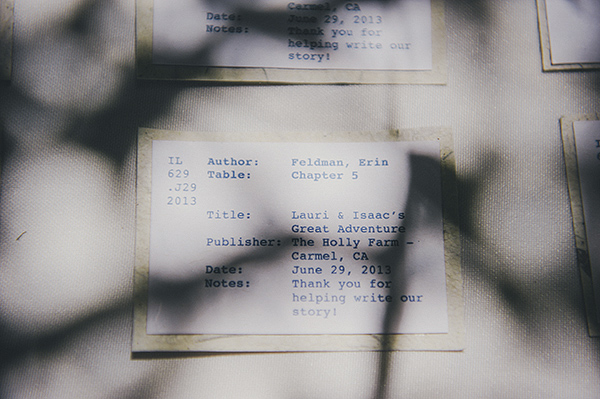 Carmel, CA
Date: June 29, 2013
Notes: Thank you for
helping write our
story!
IL Author: Feldman, Erin
629 Table: Chapter 5
.J29
2013
Title: Lauri & Isaac's
Great Adventure
Publisher: The Holly Farm –
Carmel, CA
Date: June 29, 2013
Notes: Thank you for
helping write our
story!